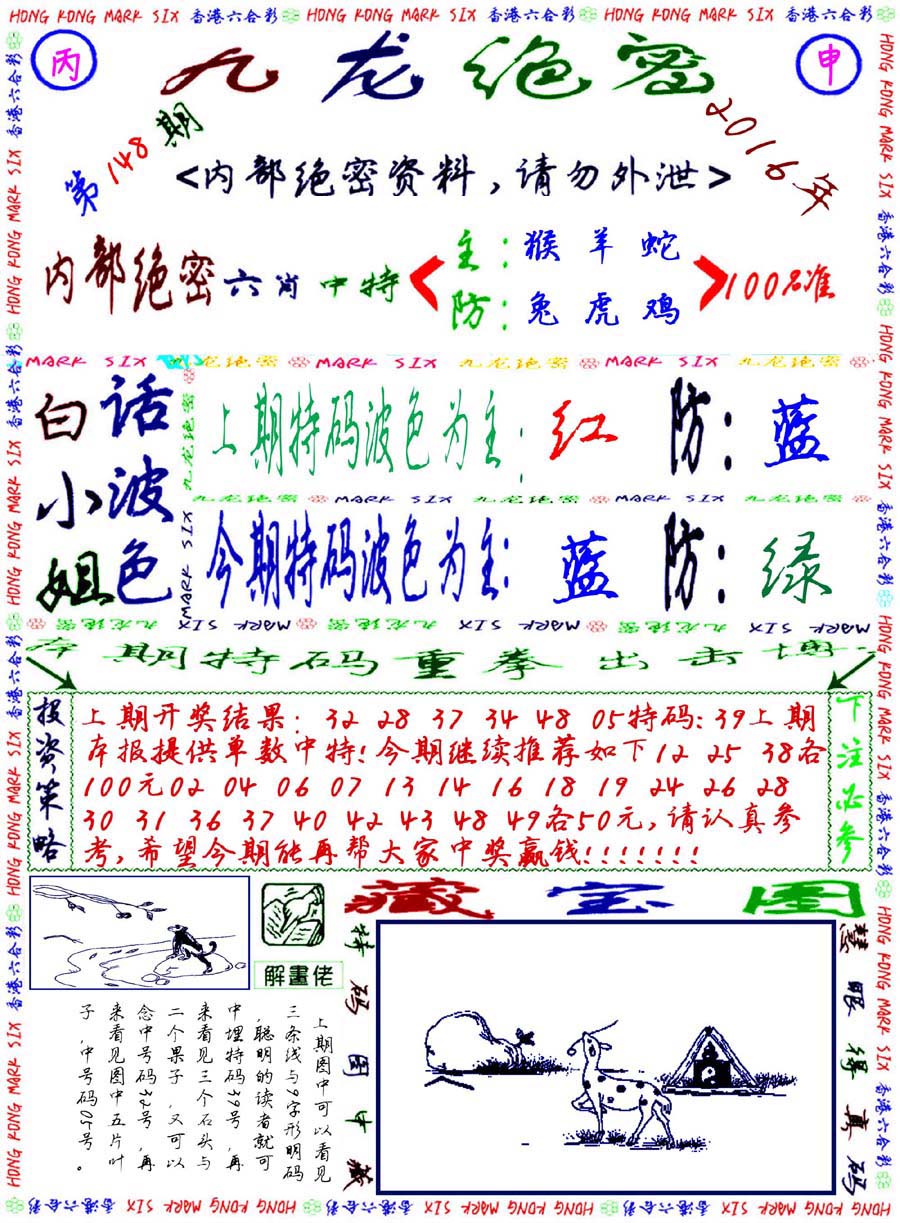 HONG KONG MARK SIX 香港六合彩 HONG KONG MARK SIX 香港六合彩 HONG KONG MARK SIX 香港六合彩
丙
九龙绝密
申
第148期
2016年
<内部绝密资料,请勿外泄>
内部绝密六肖中特
主:猴羊蛇
防:兔虎鸡
100%准
MARK SIX 九龙绝密 MARK SIX 九龙绝密 MARK SIX 九龙绝密
白话
小波
姐色
上期特码波色为主:红 防:蓝
九龙绝密 MARK SIX 九龙绝密 MARK SIX 九龙绝密
今期特码波色为主:蓝 防:绿
九龙绝密 MARK SIX 九龙绝密 MARK SIX 九龙绝密 MARK SIX
本期特码重拳出击博
投资策略
上期开奖结果:32 28 37 34 48 05特码:39上期
本报提供单数中特!今期继续推荐如下12 25 38各
100元02 04 06 07 13 14 16 18 19 24 26 28
30 31 36 37 40 42 43 48 49各50元,请认真参
考,希望今期能再帮大家中奖赢钱!!!!!!!
下注必参
藏宝图
解畫佬
上期图中可以看见
三条线与9字形明码
,聪明的读者就可
中埋特码39号,再
来看见三个石头与
二个果子,又可以
念中号码32号,再
来看见图中五片叶
子,中号码05号。
特码图中藏
慧眼得真码
HONG KONG MARK SIX 香港六合彩 HONG KONG MARK SIX 香港六合彩 HONG KONG MARK SIX 香港六合彩